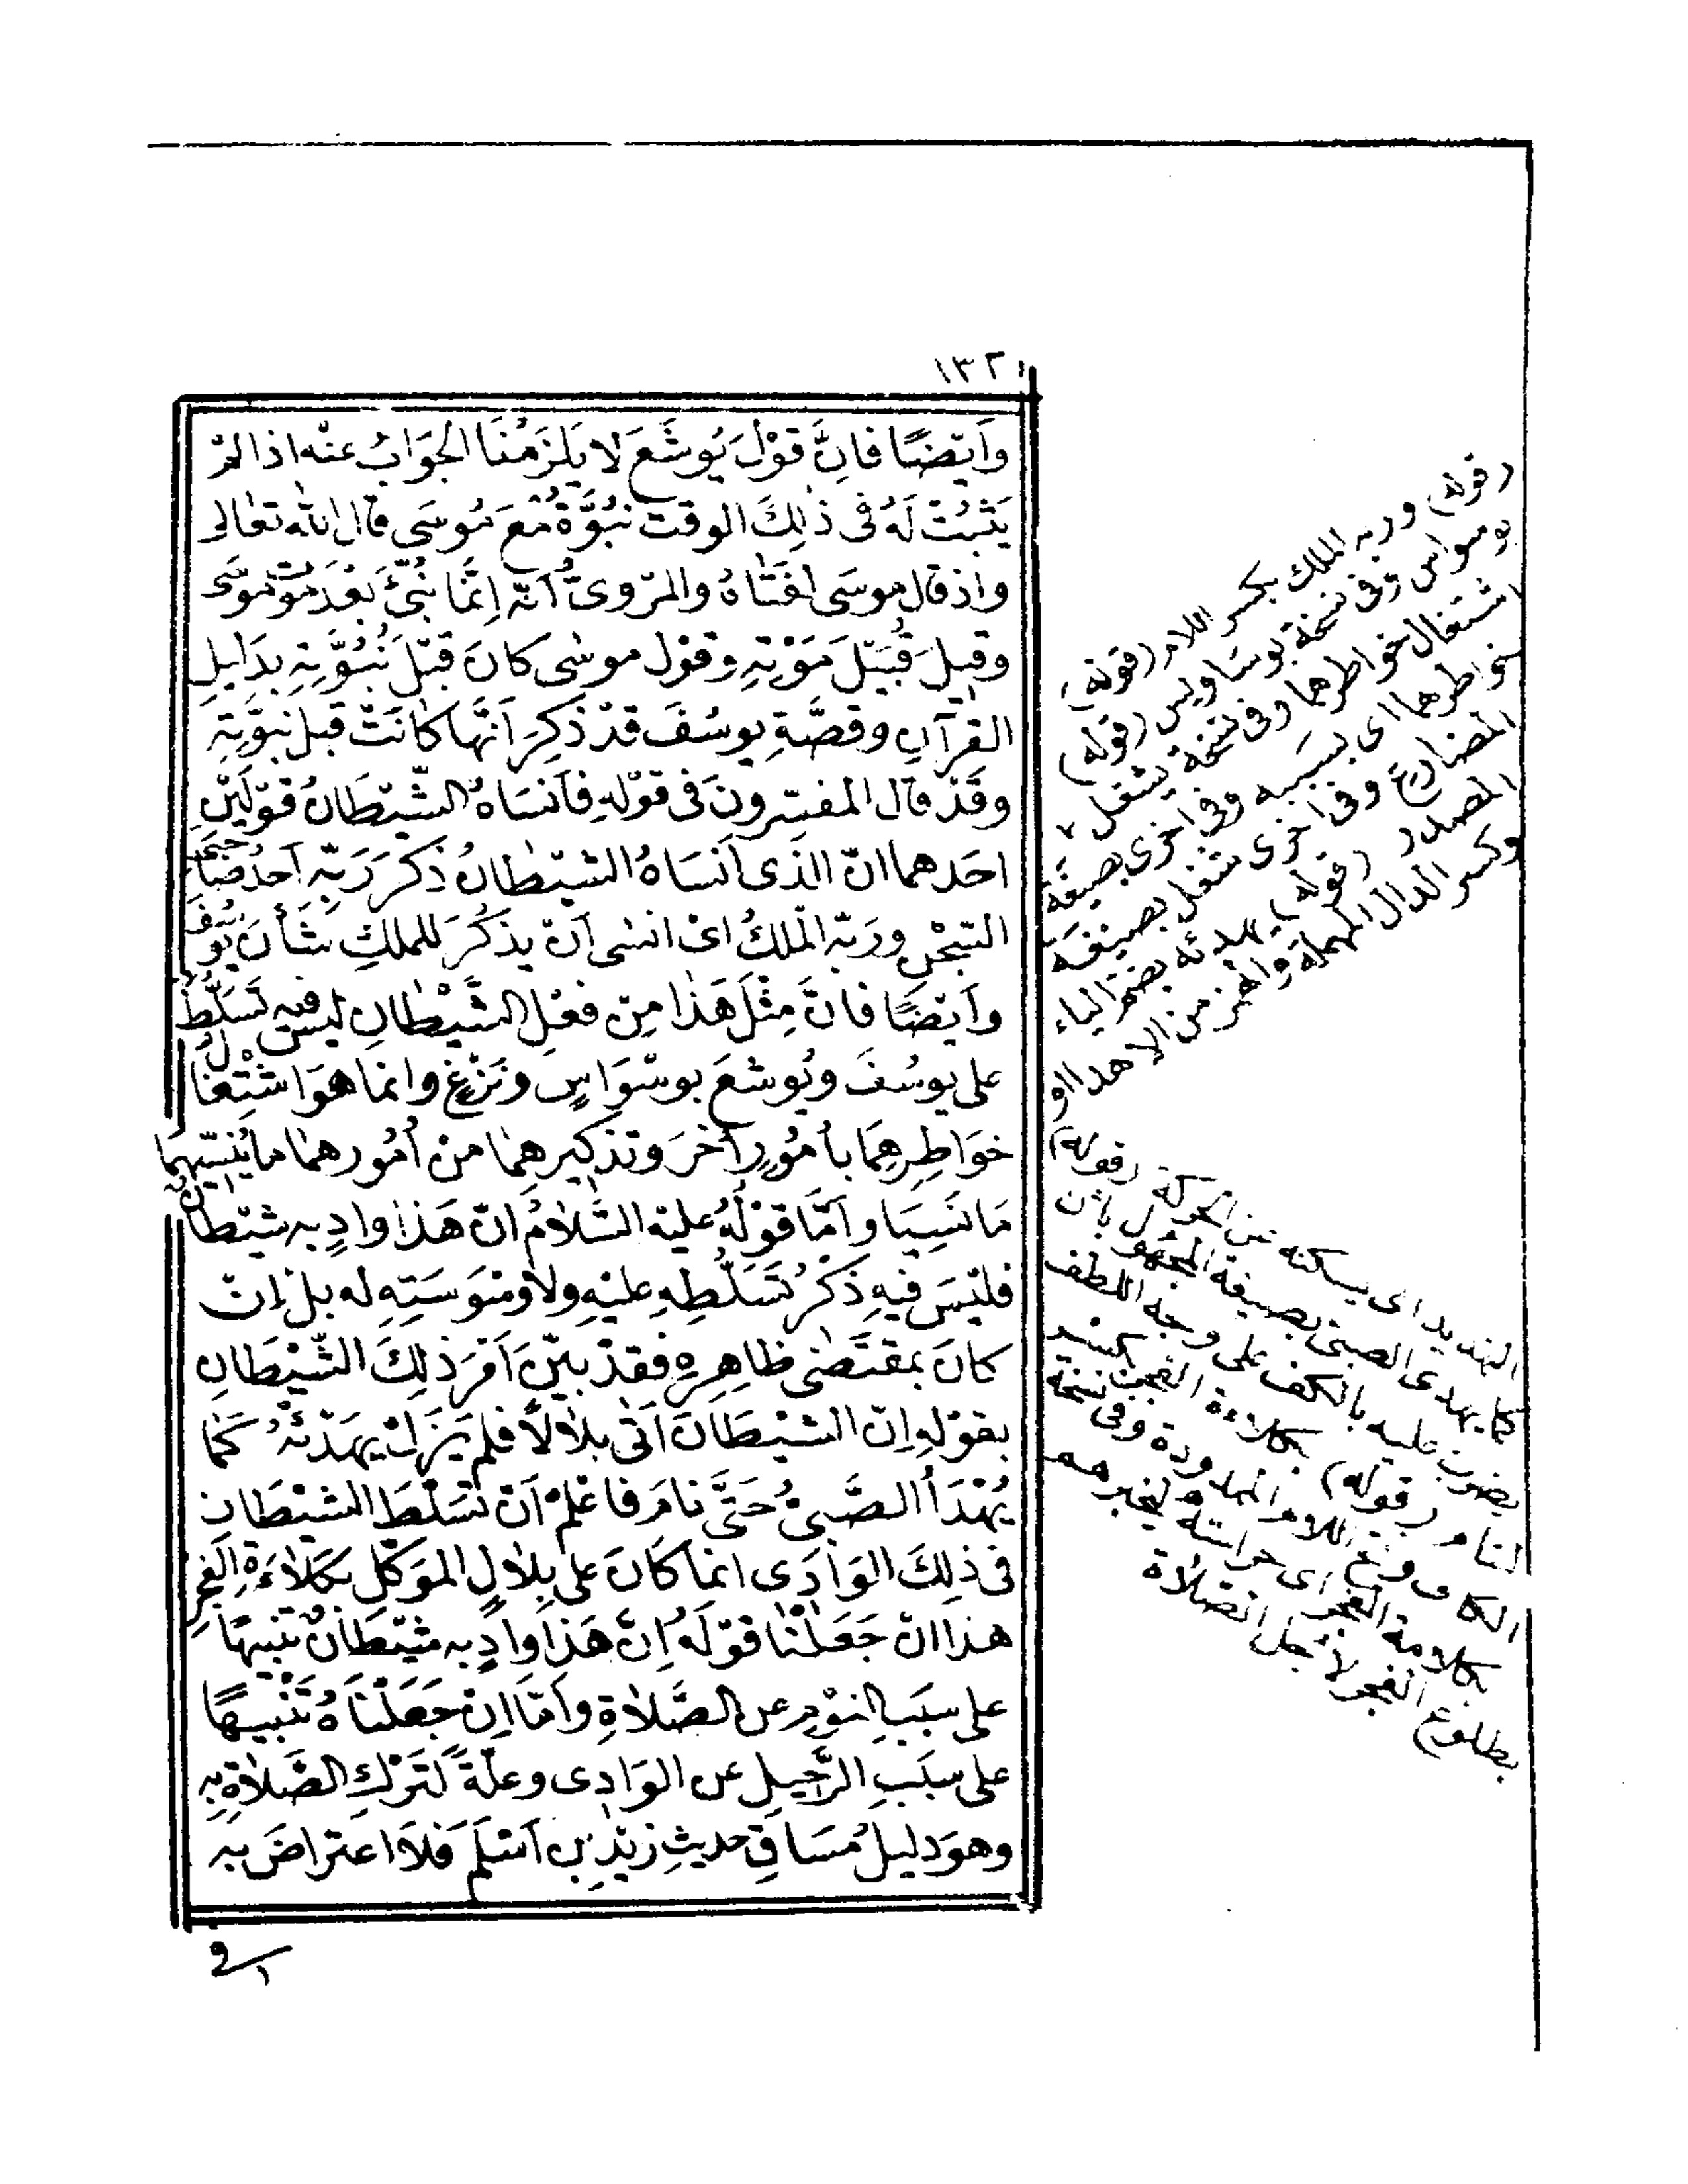 ١٣٢
وَأيْضًا فَإنَّ قَوْلَ يُوشَعَ لا يَلْزَمُنَا الجَوَابُ عَنْه اذا لمْ
يَثْبُتْ لَهُ فى ذٰلِكَ الوقت نُبُوَّةٌ مَعَ مُوسَى قال الله تعالى
واذ قال موسَى لفَتَاهُ والمَرْوىُّ أنّه إنَّما نُبِّئَ بَعْدَ مَوْتِ مُوسَى
وقيلَ قُبَيْلَ مَوْتِهِ وقول موسٰى كانَ قَبْلَ نُبُوَّتِهِ بِدَلِيلِ
القرآنِ وقصَّةِ يوسُفَ قدْ ذُكِرَ اَنَّهَا كَانَتْ قبل نبوَّتِهِ
وقَدْ قال المفسِّرونَ فى قَوْلهِ فأنسَاهُ الشّيْطَانُ قوْلَيْنِ
احَدهما انّ الذى انسَاهُ الشيْطانُ ذكرَ رَبّه اَحدُ صَاحِبَىِ
السِّجْنِ ورَبّه المَلكُ اىْ انسٰى اَنْ يذكُرَ للملكِ شَأنَ يُوسُفَ
وَأيْضًا فانَّ مِثْلَ هَذا مِنْ فعْلِ الشَّيْطانِ ليس فيه تَسَلُّطٌ
على يوسُفَ ويُوشعَ بوسْوَاسٍ ونَزْغٍ وانما هوَ اشْتِغَالُ
خوَاطِرِهِمَا بأمُورٍ أخرَ وتذكيرِهمَا منْ أُمُورِهما ما يُنَسّيهِمَا
مَا نَسِيَا وأمَّا قوْلُهُ عليْه السَّلامُ انّ هَذا وادٍ به شيْطانٌ
فليْسَ فيهِ ذكْرُ تَسَلُّطِهِ عليْهِ ولا وَسْوَسَتِهِ له بل إنْ
كانَ بمقتَضٰى ظاهِرِهِ فقدْ بيّنَ أمْرَ ذٰلِكَ الشّيْطَانِ
بقوْلهِ إنّ الشيْطَانَ أتَى بلالاً فلم يَزَلْ يهَدّئُهُ كَما
يُهْدَأُ الصَّبِىُّ حَتَّى نامَ فاعْلمْ اَنّ تَسَلّطَ الشيْطَانِ
فى ذٰلِكَ الوَادِى انما كَانَ على بِلالٍ الموَكّلِ بكَلاءَةِ الفجْرِ
هذا انْ جَعَلْنَا قوْلَهُ إنّ هَذا وادٍ به شيْطَانٌ تنبيهًا
على سبَبِ النوْمِ عن الصَّلاةِ وأمّا إنْ جَعَلْنَاهُ تَنْبيهًا
على سبَبِ الرَّحيلِ عن الوَادِى وعلّةً لتَرْكِ الصَّلاةِ بِهِ
وهوَ دليلُ مَسَاقِ حديثِ زيْدِ بنِ أسْلَمَ فلاَ اعتراضَ به
(قوله) وربه الملك بكسر اللام (قوله)
بوسواس وفى نسخة بوساويس (قوله)
اشتغال خواطرهما وفى نسخة يشغل
خواطرهما اى بسببه وفى اخرى بصيغة
المضارع وفى اخرى شغل بصيغة
المصدر (قوله) يهدئه بضم الياء
وكسر الدال المهملة والهمز من الاهداء او
التهديد اى يسكنه عن الحركة (قوله)
كما يهدى الصبى بصيغة المجهول بان
يضرب عليه بالكف على وجه اللطف
لينام (قوله) بكلاءة الفجر بكسر
الكاف وفتح اللام الممدودة وفى نسخة
بكلاءة الفجر اى حراسته ليخبرهم
بطلوع الفجر لأجل الصلاة